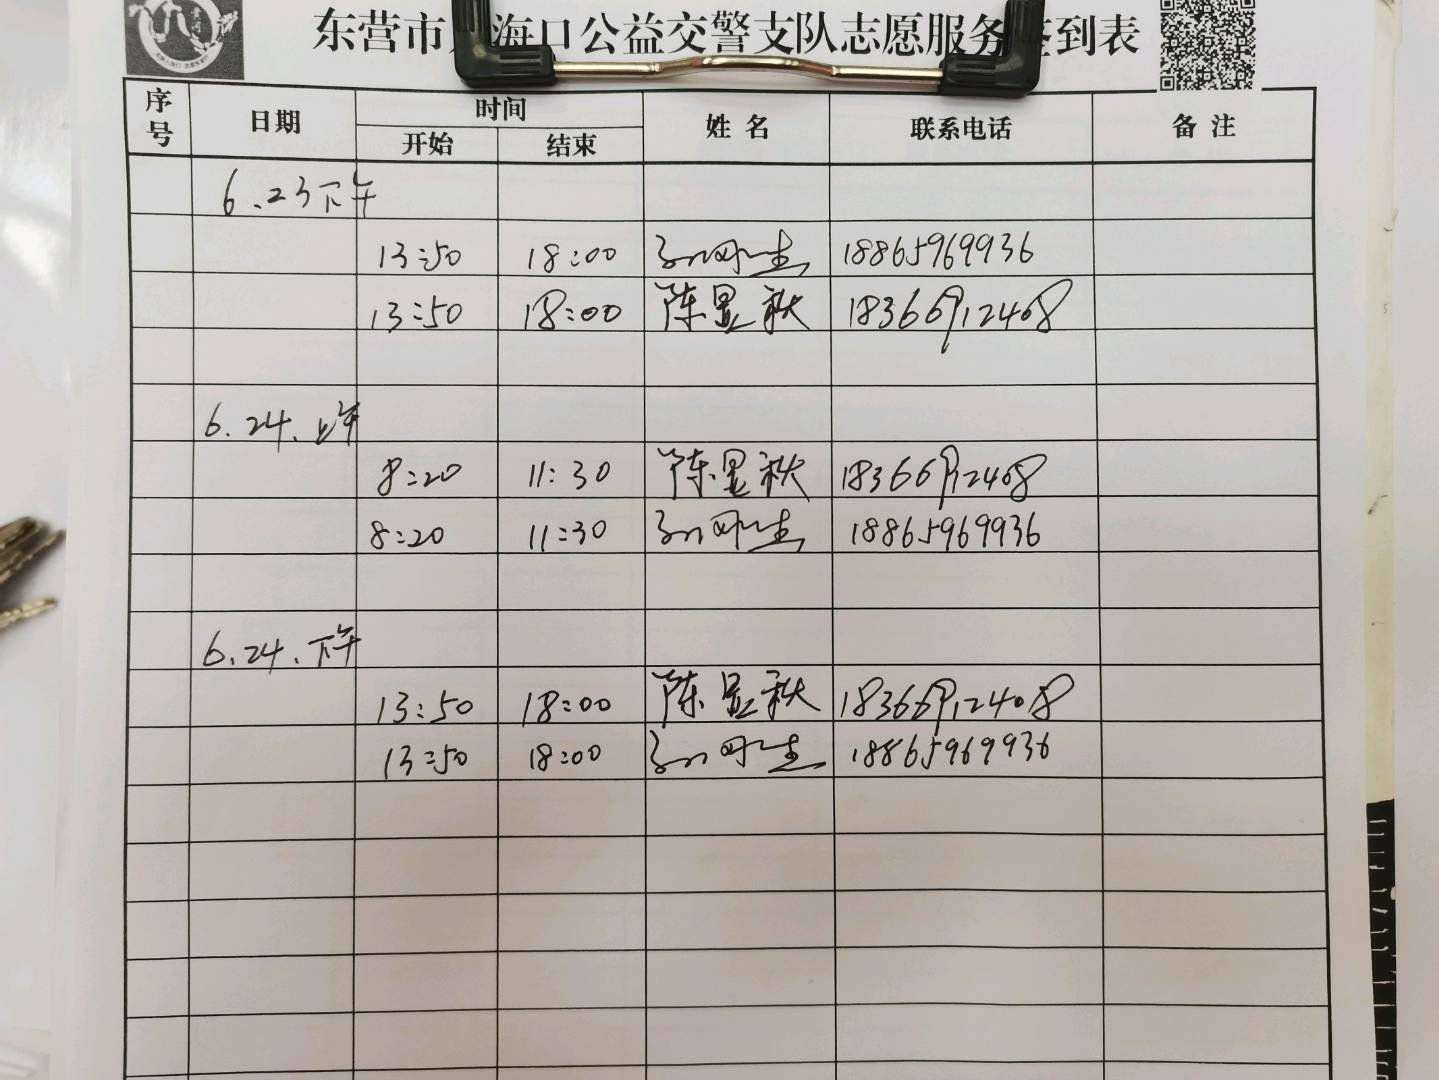 东营市 海口公益交警支队志愿服务签到表
序号 日期 时间 姓名 联系电话 备注
开始 结束
6.23下午
13:50 18:00 18865969936
13:50 18:00 陈显秋 18366912408
6.24.上午
8:20 11:30 陈显秋 18366912408
8:20 11:30 18865969936
6.24.下午
13:50 18:00 陈显秋 18366912408
13:50 18:00 18865969936